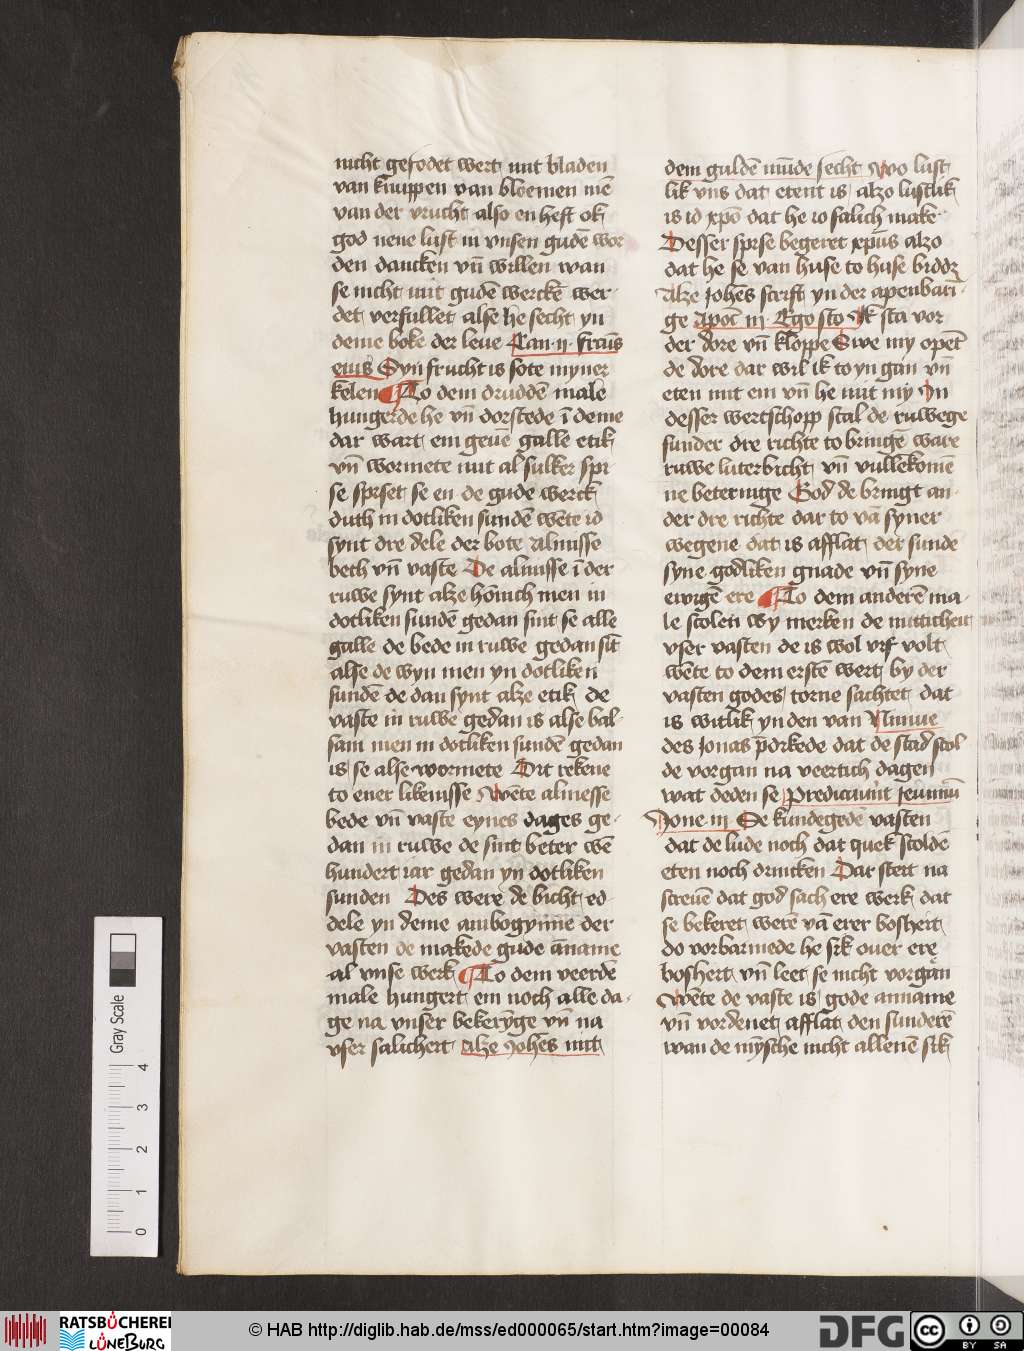 nicht gesodet wert mit bladen
van knuppen van bloemen mē
van der vrucht also en heft ok
god nene lust in vnsen gudē wor
den dancken vn̄ willen wan
se nicht mit gudē werckē wer-
det verfullet alse he secht yn
deme boke der leue Can · ij · fruct̄s
eius Syn frucht is sote myner
kelen To dem druddē male
hungerde he vn̄ dorstede ī deme
dar wart em geuē galle etik
vn̄ wormete mit al sulker spi-
se spiset se en de gude werck
duth in dotliken sundē wēte id
synt dre dele der bote almisse
beth vn̄ vaste De almisse ī der
ruwe synt alze hōnich men in
dotliken sundē gedan sint se alle
galle de bede in ruwe gedan sīt
alse de wyn men yn dotliken
sundē de dan synt alze etik de
vaste in ruwe gedan is alse bal-
sam men in dotliken sundē gedan
is se alse wormete Dit rekene
to ener likenisse Wēte almesse
bede vn̄ vaste eynes dages ge-
dan in ruwe de sint beter wē
hundert iar gedan yn dotliken
sunden Des were de bicht ed-
dele yn deme anbogynne der
vasten de makede gude āname
al vnse werk To dem veerdē
male hungert em noch alle da-
ge na vnser bekerīge vn̄ na
vser salichert alze Johēs mit
dem guldē mūde secht Wo lust
lik vns dat etent is alzo lustlik
is id xpō dat he io salich make
Desser spise begeret xpūs alzo
dat he se van huse to huse biddz
Alze Johēs scrift yn der apenbarī-
ge Apoc̄ iij Ego sto Ik sta vor
der dore vn̄ kloppe Swe my opet̄
de dore dar wil ik to yn gan vn̄
eten mit em vn̄ he mit my In
desser wertschopp scal de ruwege
sunder dre richte to bringē ware
ruwe luterbicht vn̄ vullekomē
ne beteringe God de bringt an-
der dre richte dar to vā syner
wegene dat is afflat der sunde
syne godliken gnade vn̄ syne
ewigē ere To dem anderē ma-
le scolen wy merken de nutticheit
vser vasten de is wol vrf volt
wēte to dem erstē wert by der
vasten godes torne sachtet dat
is witlik yn den van Niniue
des Jonas p̄dikede dat de stad scol
de vorgan na veertich dagen
wat deden se Predicauīt ieiuniū
Jone iij Se kundegedē vasten
dat de lude noch dat quek scoldē
eten noch drincken Dar steit na
screuē dat god sach ere werk dat
se bekeret werē vā erer bosheit
do vorbarmede he sik ouer ere
boshert vn̄ leet se nicht vorgan
Wēte de vaste is gode anname
vn̄ vordenet afflat den sunderē
wan de mȳsche nicht allenē sik
Gray Scale
0 1 2 3 4
RATSBÜCHEREI LÜNEBURG
© HAB http://diglib.hab.de/mss/ed000065/start.htm?image=00084
DFG
CC BY SA